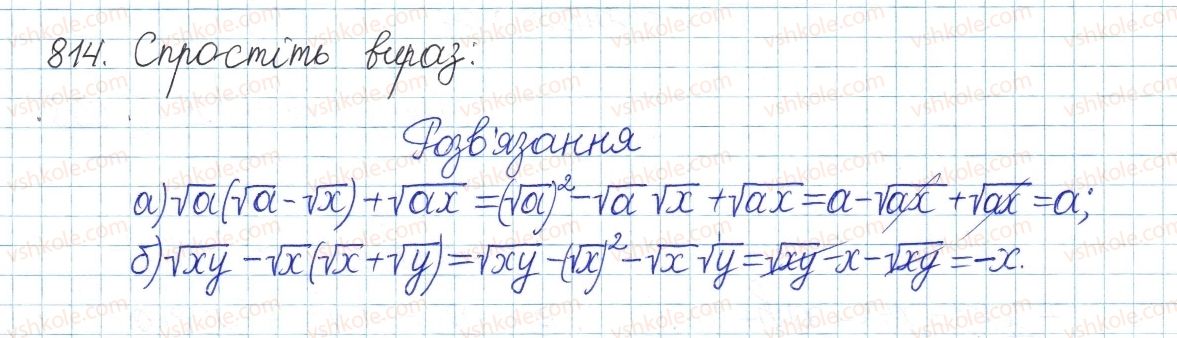 814. Спростіть вираз:
Розв'язання
а) √a(√a - √x) + √ax = (√a)² - √a √x + √ax = a - √ax + √ax = a;
б) √xy - √x(√x + √y) = √xy - (√x)² - √x √y = √xy - x - √xy = -x.